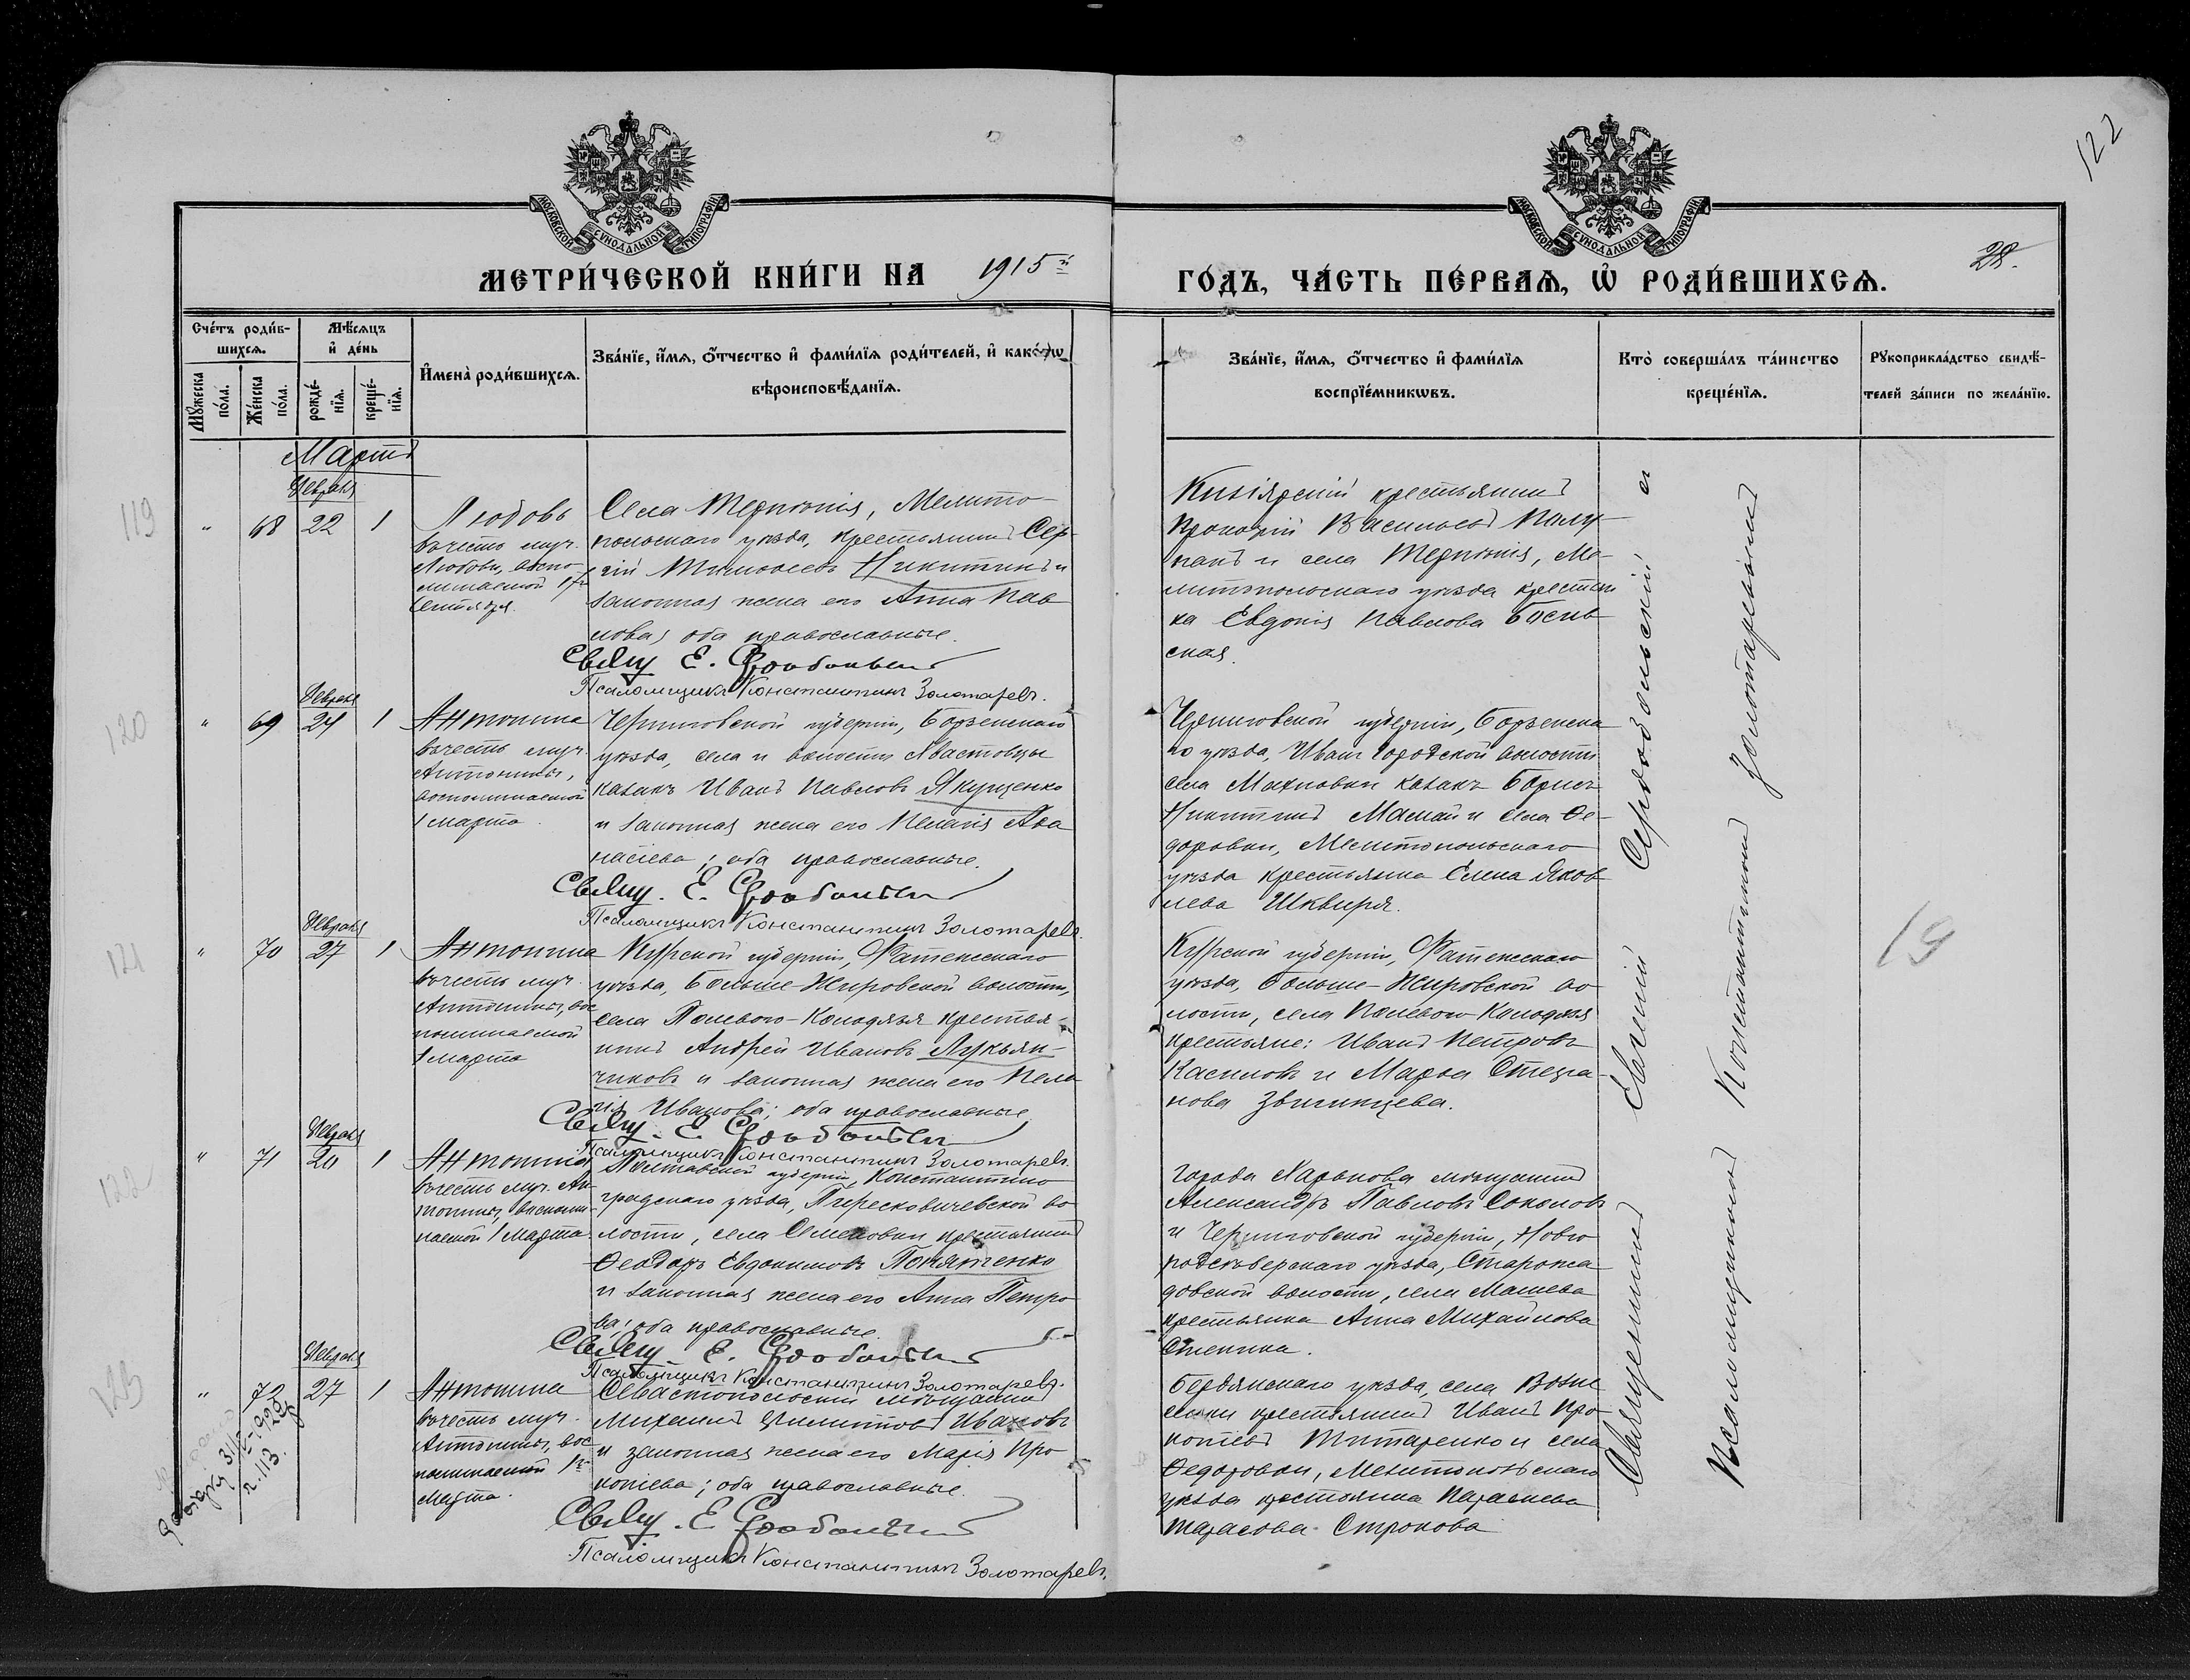 122
28.
МОСКОВСКОЙ СѴНОДАЛЬНОЙ ТИПОГРАФІИ
МОСКОВСКОЙ СѴНОДАЛЬНОЙ ТИПОГРАФІИ
МЕТРИ́ЧЕСКОЙ КНИ́ГИ НА 1915й ГО́ДЪ, ЧА́СТЬ ПЕ́РВАѦ, Ѽ РОДИ́ВШИХСѦ.
Сче́тъ роди́в-
шихсѧ.
Мѣ́сѧцъ
и҆ де́нь
Мꙋ́жеска
по́ла.
Же́нска
по́ла.
рожде́-
нїѧ.
креще́-
нїѧ.
И҆мена̀ роди́вшихсѧ.
Зва́нїе, и҆́мѧ, ѻ҆́тчество и҆ фами́лїѧ роди́телей, и҆ како́гѡ
вѣроисповѣ́данїѧ.
Зва́нїе, и҆́мѧ, ѻ҆́тчество и҆ фами́лїѧ
воспрїе́мникѡвъ.
Кто̀ соверша́лъ та́инство
креще́нїѧ.
Рꙋкоприкла́дство свидѣ́-
телей за́писи по жела́нїю.
Мартъ
119
Февраля
" 68 22 1
Любовь
въ честь муч.
Любови, воспо-
минаемой 17
Сентября.
Села Терпѣнія, Мелито-
польскаго уѣзда, крестьянинъ Сер-
гій Тимоѳеевъ Никитинъ и
законная жена его Анна Пав-
лова; оба православные.
Свящ Е. Сердобольскій
Псаломщикъ Константинъ Золотаревъ.
Кизіярскій крестьянинъ
Прокопій Васильевъ
и села Терпѣнія, Ме-
литопольскаго уѣзда крестьян
ка Евдокія Павлова
ская.
120
Февраля
" 69 24 1
Антонина
въ честь муч.
Антонины,
воспоминаемой
1 Марта.
Черниговской губерніи, Борзенскаго
уѣзда, села и волости Ивастовцы
казакъ Иванъ Павловъ Якущенко
и законная жена его Пелагія Аѳа
насіева; оба православные.
Свящ. Е. Сердобольскій
Псаломщикъ Константинъ Золотаревъ.
Черниговской губерніи, Борзенска
го уѣзда, Иванъ Городской волости
села Махновки казакъ Борисъ
Никитинъ Мамай и села Ѳе-
доровки, Мелитопольскаго
уѣзда крестьянка Елена Яков
лева Шквиря.
121
Февраля
" 70 27 1
Антонина
въ честь муч.
Антонины, вос
поминаемой
1 Марта
Курской губерніи, Фатежскаго
уѣзда, Больше-Жировской волости,
села Полевого-Колодязя крестья-
нинъ Андрей Ивановъ Лукьян-
чиковъ и законная жена его Пела
гія Иванова; оба православные
Свящ. Е. Сердобольскій
Псаломщикъ Константинъ Золотаревъ.
Курской губерніи, Фатежскаго
уѣзда, Больше-Жировской во
лости, села Полевого Колодязя
крестьяне: Иванъ Петровъ
Касиловъ и Марѳа Стефа-
нова Звягинцева.
19
122
Февраля
" 71 20 1
Антонина
въ честь муч. Ан
тонины, воспоми-
наемой 1 Марта
Полтавской губерніи, Константино
градскаго уѣзда, во
лости, села Семеновки крестьянинъ
Ѳеодоръ Евдокимовъ
и законная жена его Анна Петро
ва; оба православные.
Свящ Е. Сердобольскій
Псаломщикъ Константинъ Золотаревъ.
Города Харькова мѣщанинъ
Александръ Павловъ Соколовъ
и Черниговской губерніи, Новго
родсѣверскаго уѣзда,
довской волости, села Машева
крестьянка Анна Михайлова
123
Февраля
" 72 27 1
Антонина
въ честь муч.
Антонины, вос
поминаемой 1го
Марта.
Севастопольскій мѣщанинъ
Михаилъ Ивановъ
и законная жена его Марія Про
копіева; оба православные.
Свящ. Е. Сердобольскій
Псаломщикъ Константинъ Золотаревъ.
Бердянскаго уѣзда, села Возне
сенки крестьянинъ Иванъ Про
копіевъ Титаренко и села
Ѳедоровки, Мелитопольскаго
уѣзда крестьянка Параскева
Тарасова Строкова
Священникъ Евгеній Сердобольскій
Псаломщикъ Константинъ Золотаревъ